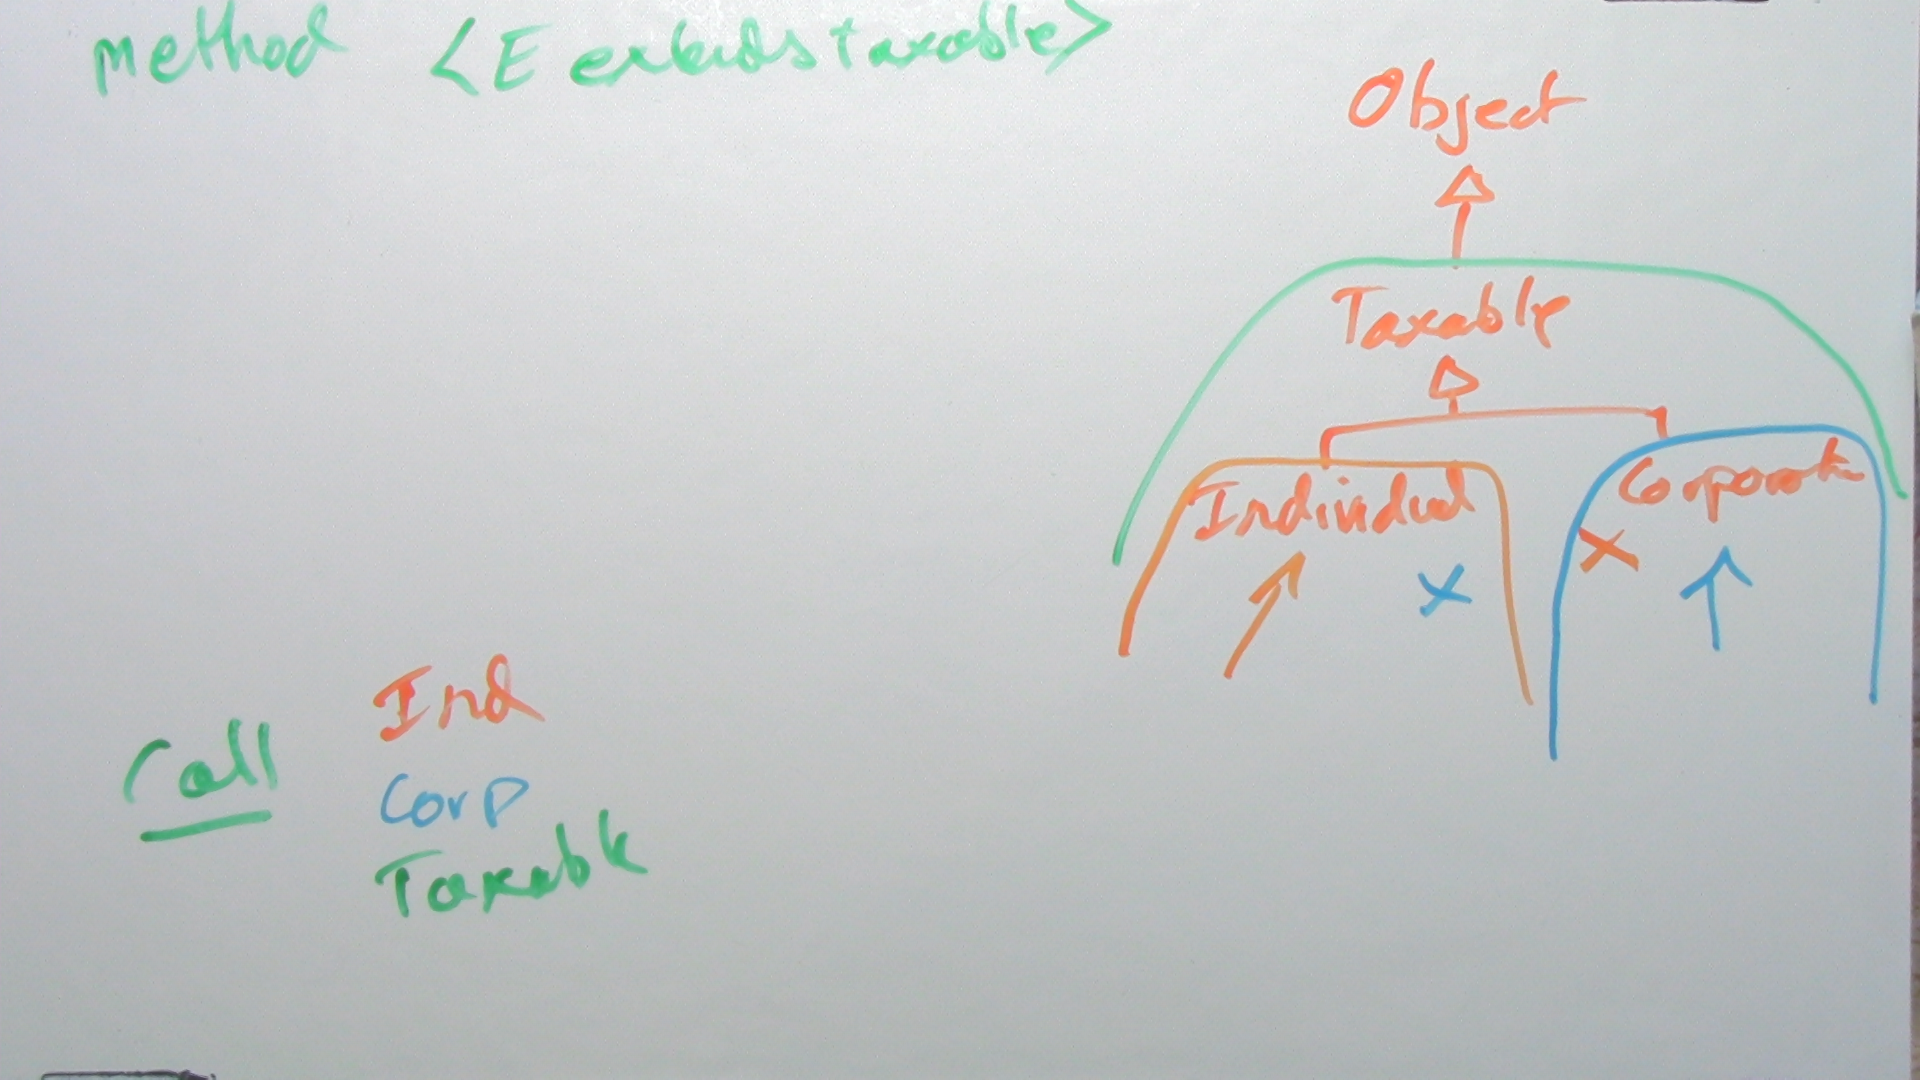 method <E extends taxable>
Object
Taxable
Individual Corporate
X X
Ind
Call
Corp
Taxable